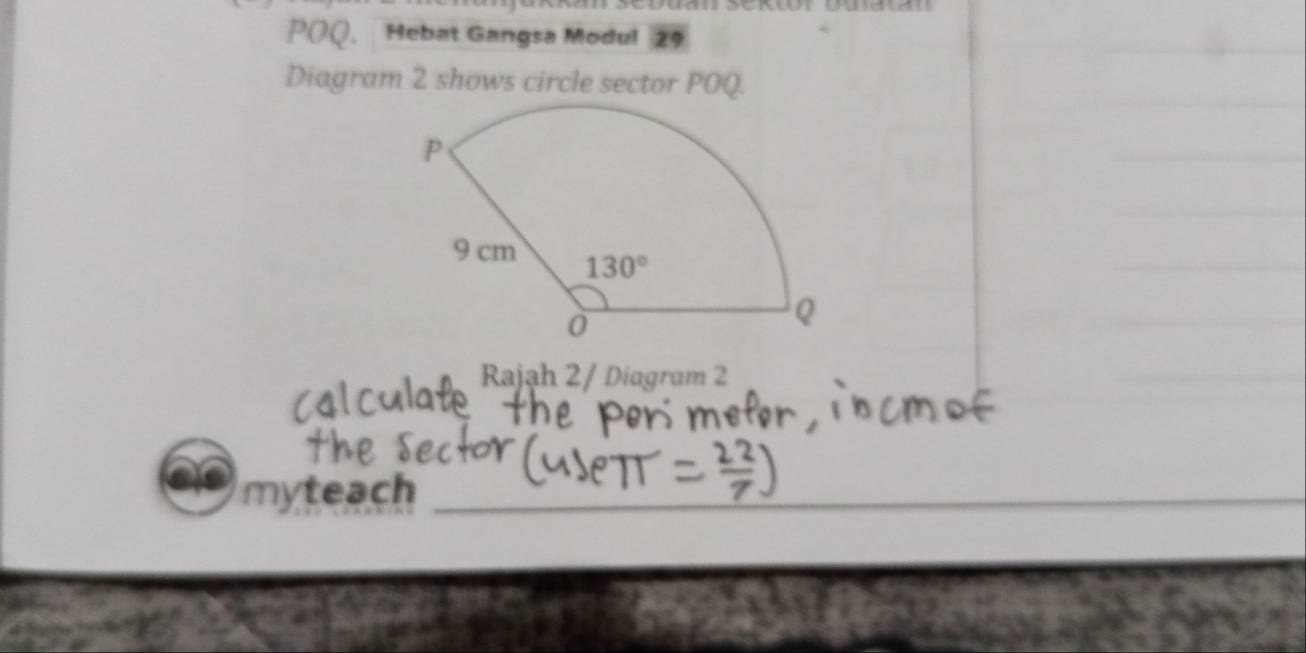 sebuah sektor bulatan
POQ. Hebat Gangsa Modul 29
Diagram 2 shows circle sector POQ.
P
9 cm
130°
O
Q
Rajah 2 / Diagram 2
calculate the perimeter, in cm of
the sector (use π = 22/7)
myteach